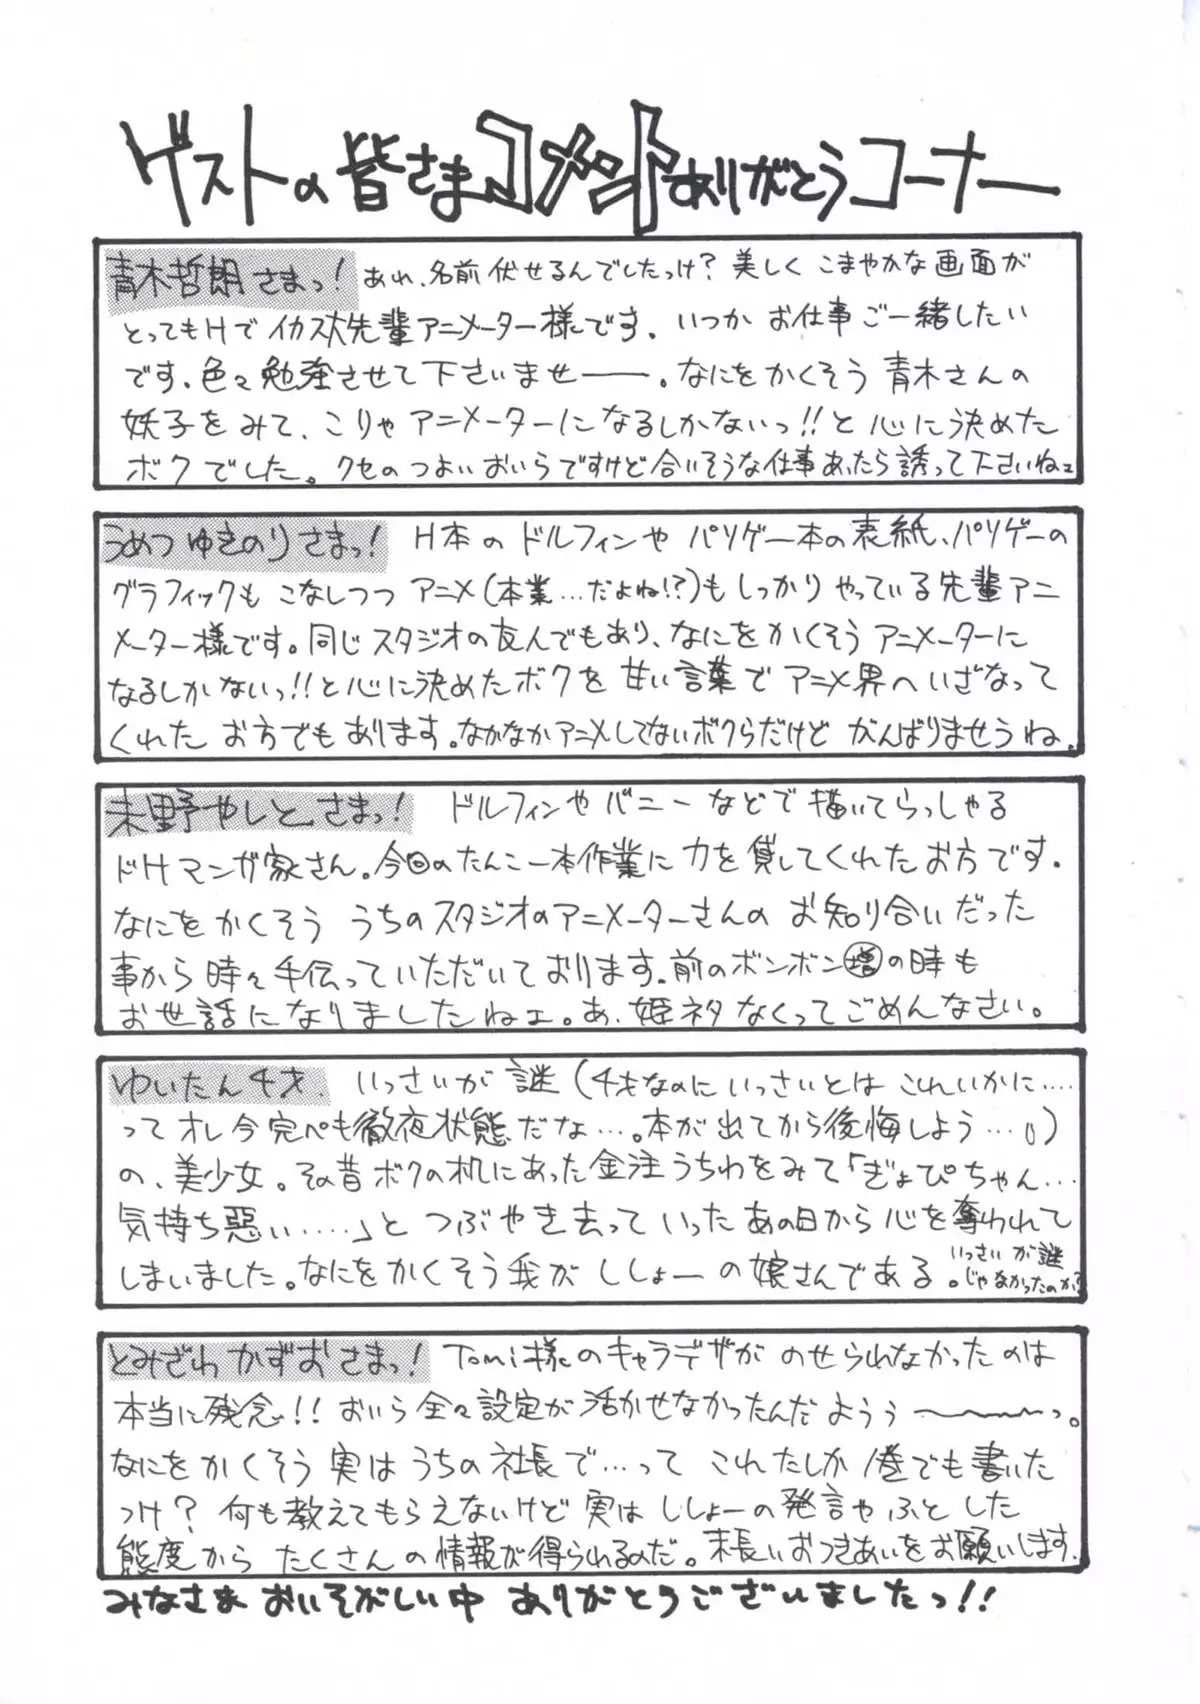 ゲストの皆さまコメントありがとうコーナー
青木哲朗さまっ! あれ、名前伏せるんでしたっけ? 美しくこまやかな画面が
とってもHでイカス大先輩アニメーター様です。いつかお仕事ご一緒したい
です。色々勉強させて下さいませーー。なにをかくそう青木さんの
妖子をみて、こりゃアニメーターになるしかないっ!!と心に決めた
ボクでした。クセのつよいおいらですけど合いそうな仕事あったら誘って下さいねェ
うめつゆきのりさまっ! H本のドルフィンやパソゲー本の表紙、パソゲーの
グラフィックもこなしつつアニメ(本業…だよね!?)もしっかりやっている先輩アニ
メーター様です。同じスタジオの友人でもあり、なにをかくそうアニメーターに
なるしかないっ!!と心に決めたボクを甘い言葉でアニメ界へいざなって
くれたお方でもあります。なかなかアニメしてないボクらだけどがんばりませうね。
未野やしとさまっ! ドルフィンやバニーなどで描いてらっしゃる
ドHマンガ家さん。今回のたんこー本作業に力を貸してくれたお方です。
なにをかくそううちのスタジオのアニメーターさんのお知り合いだった
事から時々手伝っていただいております。前のボンボン増の時も
お世話になりましたねェ。あ、姫ネタなくってごめんなさい。
ゆいたん4才。いっさいが謎(4才なのにいっさいとはこれいかに……
ってオレ今完ペキ徹夜状態だな…。本が出てから後悔しよう…)
の、美少女。その昔ボクの机にあった金注うちわをみて「ぎょぴちゃん…
気持ち悪い……」とつぶやき去っていったあの日から心を奪われて
しまいました。なにをかくそう我がししょーの娘さんである。いっさいが謎
じゃなかったのか?
とみざわかずおさまっ! Tomi様のキャラデザがのせられなかったのは
本当に残念!!おいら全々設定が活かせなかったんだようぅ〜〜っ。
なにをかくそう実はうちの社長で…ってこれたしか1巻でも書いた
っけ?何も教えてもらえないけど実はししょーの発言やふとした
態度からたくさんの情報が得られるのだ。末長いおつきあいをお願いします。
みなさまおいそがしい中ありがとうございましたっ!!